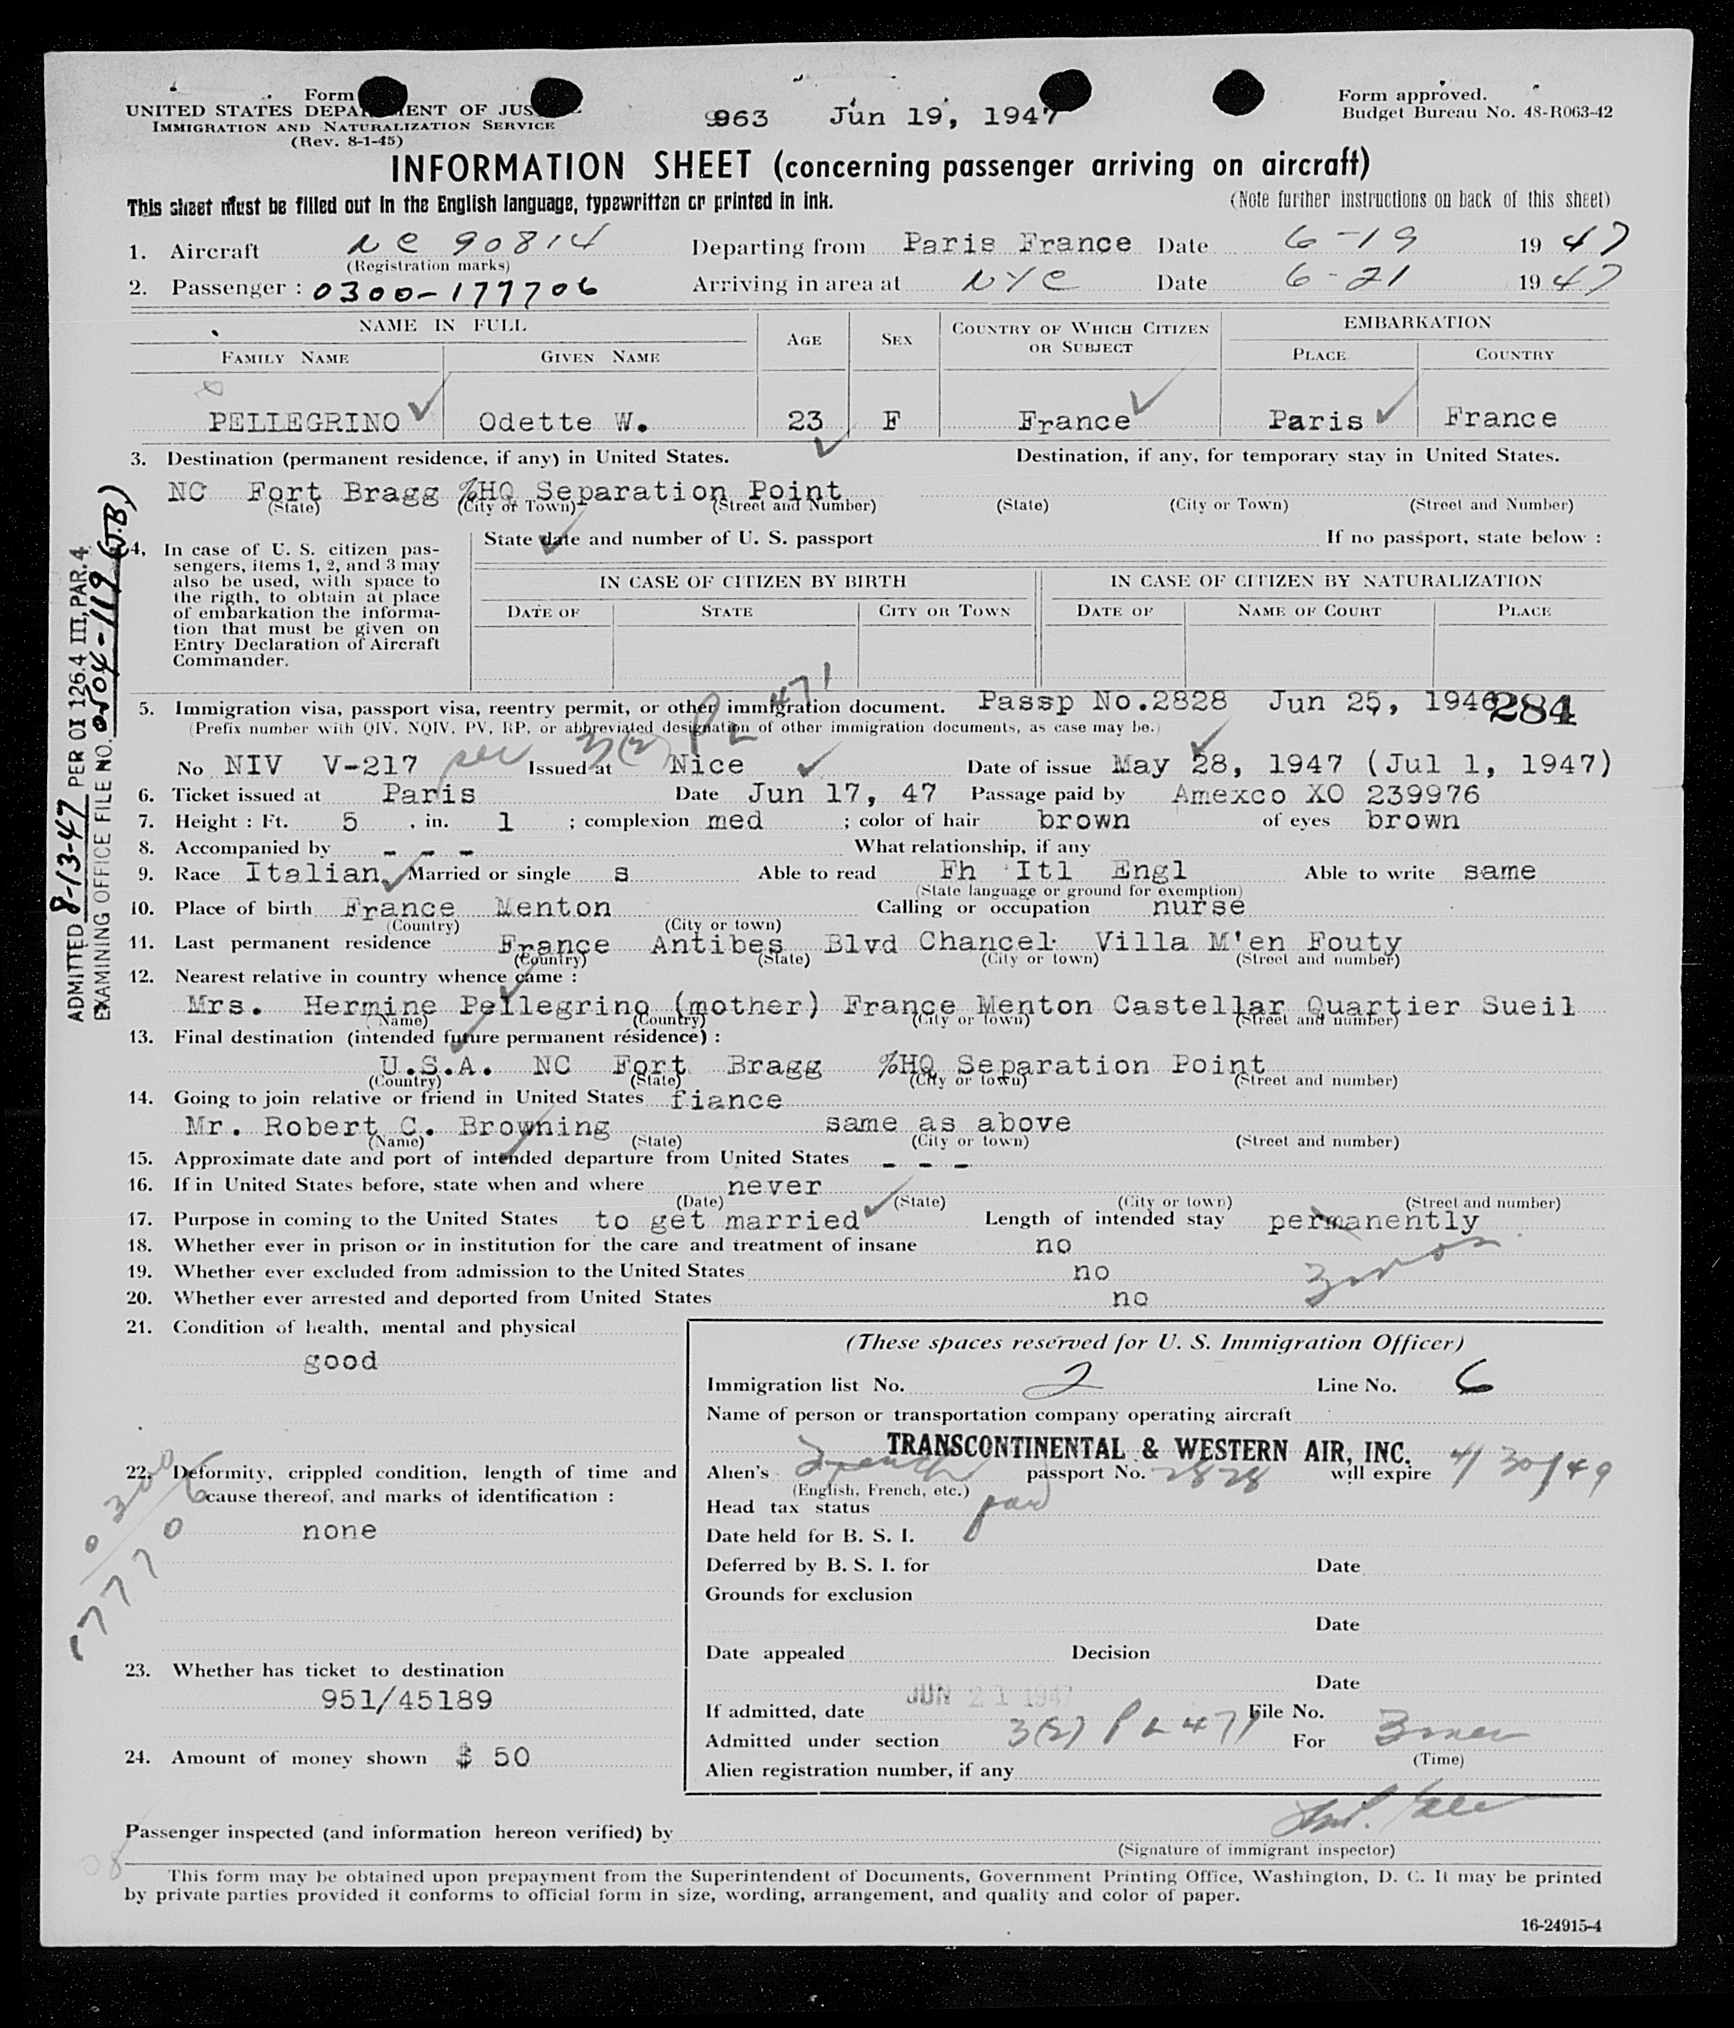 Form
UNITED STATES DEPA ENT OF JUS
IMMIGRATION AND NATURALIZATION SERVICE
(Rev. 8-1-45)
963 Jun 19, 1947
Form approved.
Budget Bureau No. 48-R063-42
INFORMATION SHEET (concerning passenger arriving on aircraft)
This sheet must be filled out in the English language, typewritten or printed in ink. (Note further instructions on back of this sheet)
1. Aircraft NC 90814 Departing from Paris France Date 6-19 1947
(Registration marks)
2. Passenger: 0300-177706 Arriving in area at NYC Date 6-21 1947
NAME IN FULL AGE SEX COUNTRY OF WHICH CITIZEN OR SUBJECT EMBARKATION
FAMILY NAME GIVEN NAME PLACE COUNTRY
PELLEGRINO Odette W. 23 F France Paris France
3. Destination (permanent residence, if any) in United States. Destination, if any, for temporary stay in United States.
NC Fort Bragg %HQ Separation Point
(State) (City or Town) (Street and Number) (State) (City or Town) (Street and Number)
4. In case of U. S. citizen pas-
sengers, items 1, 2, and 3 may
also be used, with space to
the rigth, to obtain at place
of embarkation the informa-
tion that must be given on
Entry Declaration of Aircraft
Commander.
State date and number of U. S. passport If no passport, state below:
IN CASE OF CITIZEN BY BIRTH IN CASE OF CITIZEN BY NATURALIZATION
DATE OF STATE CITY OR TOWN DATE OF NAME OF COURT PLACE
ADMITTED 8-13-47 PER OI 126.4 III, PAR. 4
EXAMINING OFFICE FILE NO. 0504-119 (J.B)
5. Immigration visa, passport visa, reentry permit, or other immigration document. Passp No.2828 Jun 25, 1946 284
(Prefix number with QIV, NQIV, PV, RP, or abbreviated designation of other immigration documents, as case may be.)
sec 3(2) PL 471
No NIV V-217 Issued at Nice Date of issue May 28, 1947 (Jul 1, 1947)
6. Ticket issued at Paris Date Jun 17, 47 Passage paid by Amexco XO 239976
7. Height: Ft. 5, in. 1; complexion med; color of hair brown of eyes brown
8. Accompanied by - - - What relationship, if any
9. Race Italian Married or single s Able to read Fh Itl Engl Able to write same
(State language or ground for exemption)
10. Place of birth France Menton Calling or occupation nurse
(Country) (City or town)
11. Last permanent residence France Antibes Blvd Chancel Villa M'en Fouty
(Country) (State) (City or town) (Street and number)
12. Nearest relative in country whence came:
Mrs. Hermine Pellegrino (mother) France Menton Castellar Quartier Sueil
(Name) (Country) (City or town) (Street and number)
13. Final destination (intended future permanent residence):
U.S.A. NC Fort Bragg %HQ Separation Point
(Country) (State) (City or town) (Street and number)
14. Going to join relative or friend in United States fiance
Mr. Robert C. Browning same as above
(Name) (State) (City or town) (Street and number)
15. Approximate date and port of intended departure from United States - - -
16. If in United States before, state when and where never
(Date) (State) (City or town) (Street and number)
17. Purpose in coming to the United States to get married Length of intended stay permanently
18. Whether ever in prison or in institution for the care and treatment of insane no
3 mos.
19. Whether ever excluded from admission to the United States no
20. Whether ever arrested and deported from United States no
21. Condition of health, mental and physical
good
22. Deformity, crippled condition, length of time and
cause thereof, and marks of identification:
none
0300
177706
23. Whether has ticket to destination
951/45189
24. Amount of money shown $ 50
(These spaces reserved for U. S. Immigration Officer)
Immigration list No. 2 Line No. 6
Name of person or transportation company operating aircraft
TRANSCONTINENTAL & WESTERN AIR, INC.
Alien's French passport No. 2828 will expire 4/30/49
(English, French, etc.)
Head tax status paid
Date held for B. S. I.
Deferred by B. S. I. for Date
Grounds for exclusion
Date
Date appealed Decision
Date
If admitted, date JUN 21 1947 File No.
Admitted under section 3(2) PL 471 For 3 mos
(Time)
Alien registration number, if any
Passenger inspected (and information hereon verified) by
(Signature of immigrant inspector)
This form may be obtained upon prepayment from the Superintendent of Documents, Government Printing Office, Washington, D. C. It may be printed
by private parties provided it conforms to official form in size, wording, arrangement, and quality and color of paper.
16-24915-4